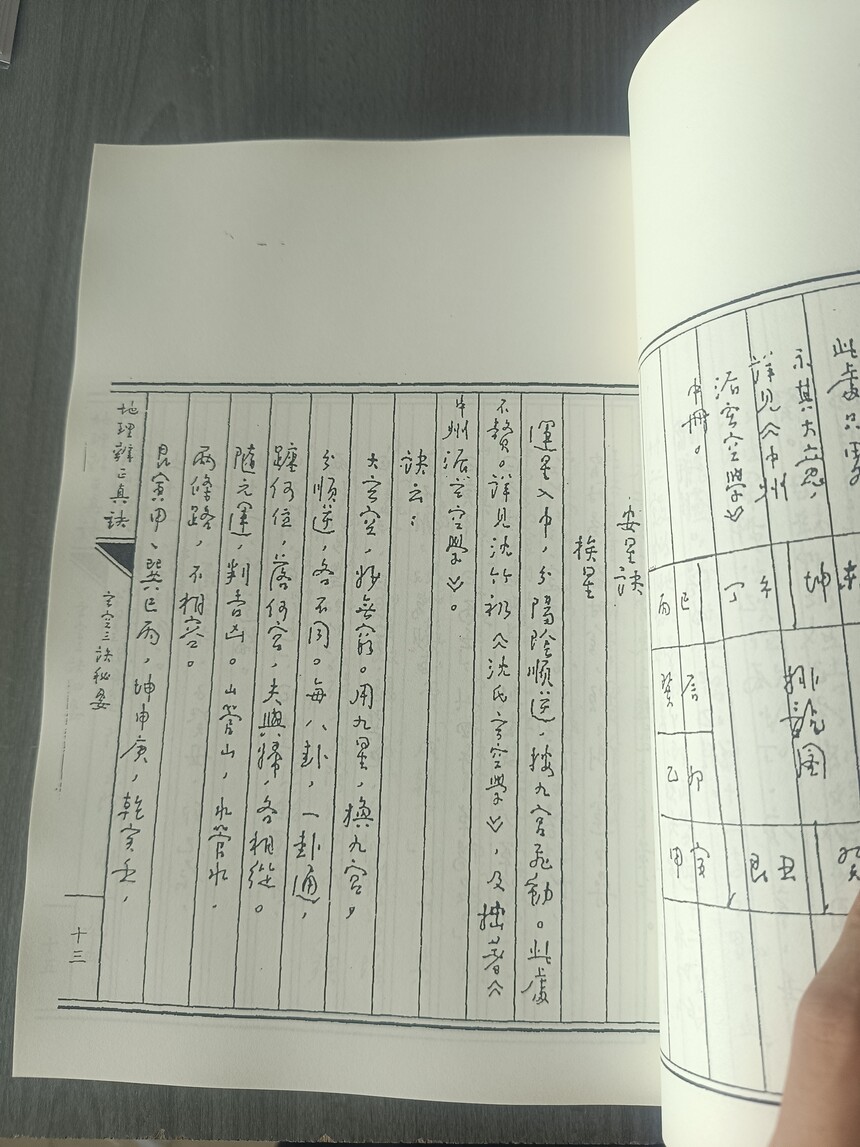 此處只畧
示其大意，
詳見︽中州
派玄空學︾
中冊。
未
坤
午
丁
巳
丙
辰
巽
卯
乙
寅
甲
丑
艮
癸
排龍圖
安星訣
挨星
運星入中，分陽陰順逆，按九宮飛動。此處
不贅。詳見沈竹礽︽沈氏玄空學︾，及拙著︽
中州派玄空學︾。
訣云：
大玄空，妙無窮。用九星，換九宮，
分順逆，各不同。每八卦，一卦通，
躔何位，落何宮，夫與婦，各相從。
隨元運，判吉凶。山管山，水管水，
兩條路，不相容。
艮寅甲、巽巳丙，坤申庚，乾亥壬，
地理辨正真訣
玄空三訣秘要
十三